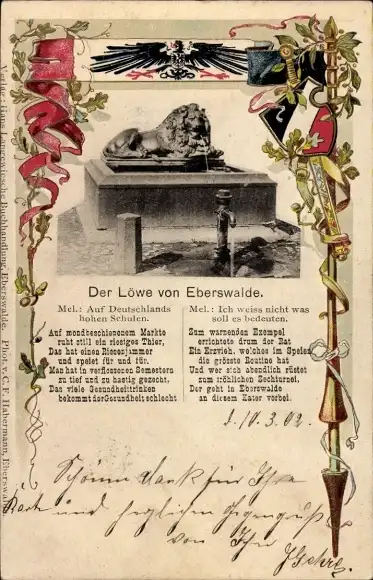 Der Löwe von Eberswalde.
Mel.: Auf Deutschlands
hohen Schulen.
Auf mondbeschienenem Markte
ruht still ein riesiges Thier,
Das hat einen Riesenjammer
und speiet für und für.
Man hat in verflossenen Semestern
zu tief und zu hastig gezecht,
Das viele Gesundheittrinken
bekommt der Gesundheit schlecht
Mel.: Ich weiss nicht was
soll es bedeuten.
Zum warnenden Exempel
errichtete drum der Rat
Ein Erzvieh, welches im Speien
die grösste Routine hat
Und wer sich abendlich rüstet
zum fröhlichen Zechturnei,
Der geht in Eberswalde
an diesem Kater vorbei.
10.3.02.
Schönen Dank für Ihre
Karte und herzlichen Gegengruß
von Ihr
Verlag: Hans Langewiesche Buchhandlung, Eberswalde. Phot. v. C. F. Habermann, Eberswalde.